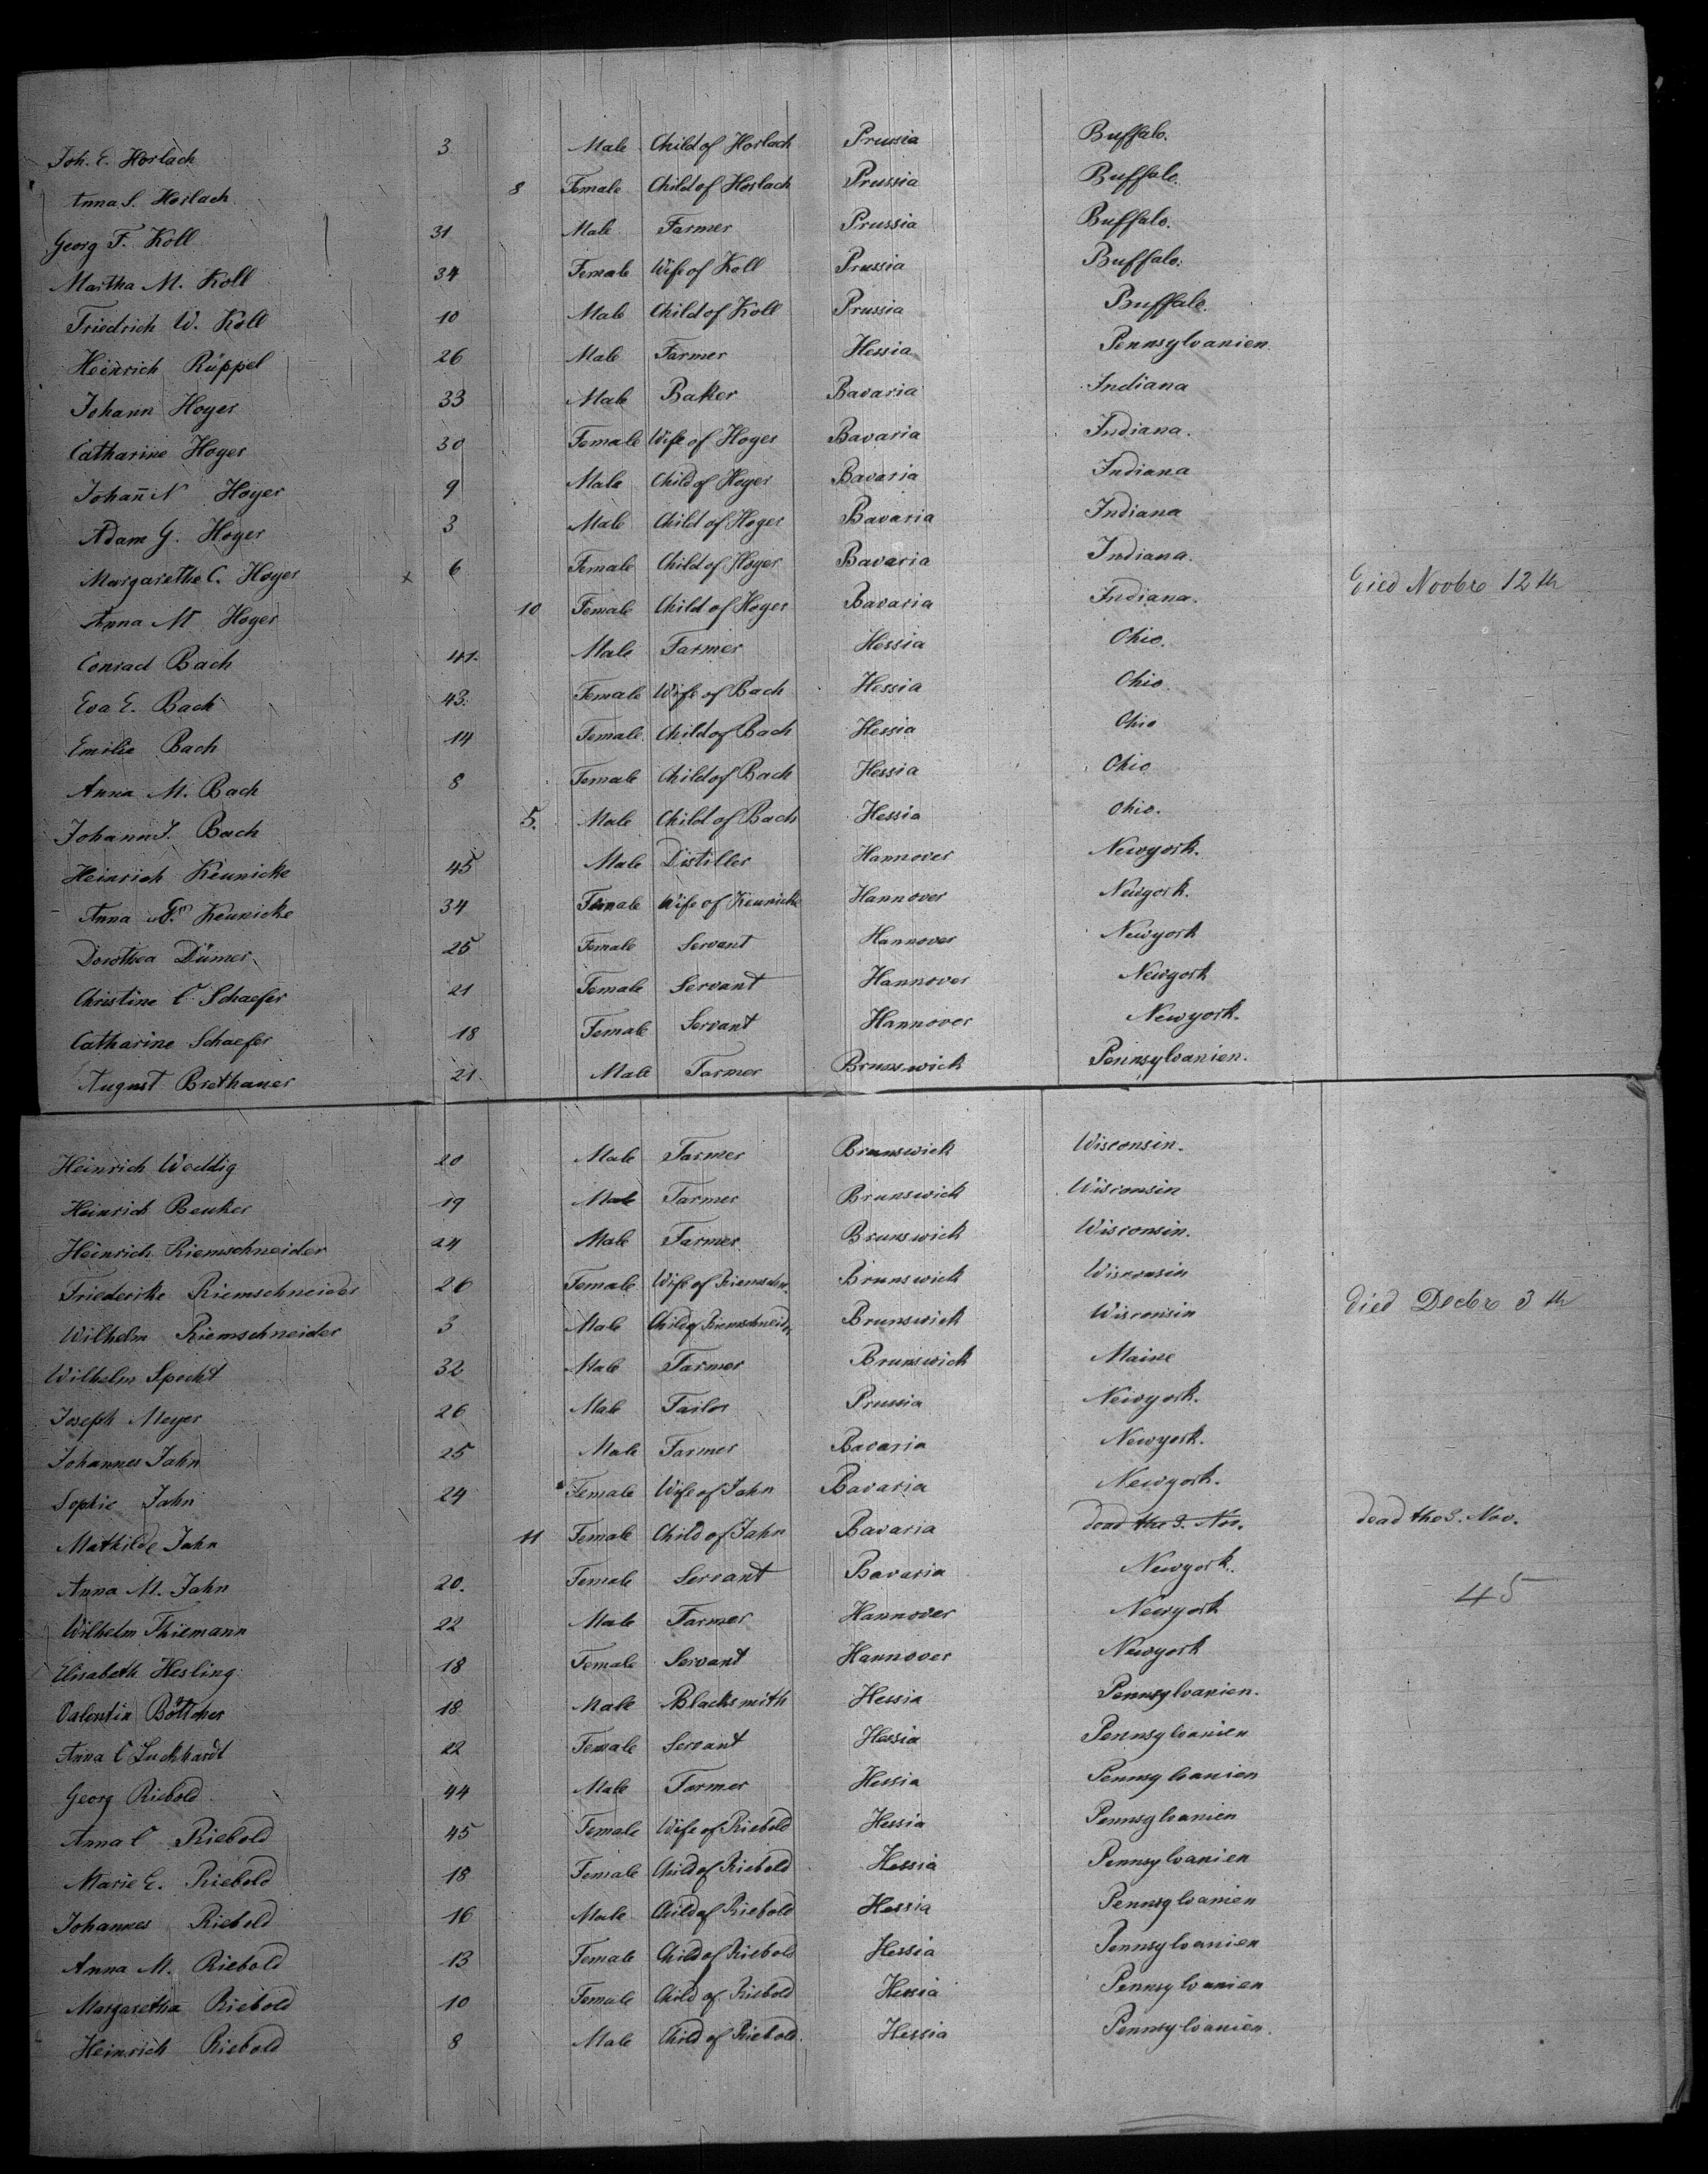 Joh. E. Horlach 3 Male Child of Horlach Prussia Buffalo.
Anna S. Horlach 8 Female Child of Horlach Prussia Buffalo.
Georg F. Koll 31 Male Farmer Prussia Buffalo.
Martha M. Koll 34 Female Wife of Koll Prussia Buffalo.
Friedrich W. Koll 10 Male Child of Koll Prussia Buffalo.
Heinrich Rüppel 26 Male Farmer Hessia Pennsylvanien.
Johann Hoyer 33 Male Baker Bavaria Indiana
Catharine Hoyer 30 Female Wife of Hoyer Bavaria Indiana.
Johan̄ N Hoyer 9 Male Child of Hoyer Bavaria Indiana
Adam G. Hoyer 3 Male Child of Hoyer Bavaria Indiana
Margarethe C. Hoyer x 6 Female Child of Hoyer Bavaria Indiana. Died Novbr 12th
Anna M Hoyer 10 Female Child of Hoyer Bavaria Indiana.
Conrad Bach 41. Male Farmer Hessia Ohio.
Eva E. Bach 43. Female Wife of Bach Hessia Ohio.
Emilie Bach 14 Female. Child of Bach Hessia Ohio
Anna M. Bach 8 Female Child of Bach Hessia Ohio
Johann J. Bach 5. Male Child of Bach Hessia Ohio.
Heinrich Keunicke 45 Male Distiller Hannover Newyork.
Anna Keunicke 34 Female Wife of Keunicke Hannover Newyork.
Dorothea Dümer 25 Female Servant Hannover Newyork
Christine C Schaefer 21 Female Servant Hannover Newyork
Catharine Schaefer 18 Female Servant Hannover Newyork.
August Brethauer 21. Male Farmer Brunswick Pennsylvanien.
Heinrich Weddig 20 Male Farmer Brunswick Wisconsin.
Heinrich Beuker 19 Male Farmer Brunswick Wisconsin
Heinrich Riemschneider 24 Male Farmer Brunswick Wisconsin.
Friederike Riemschneider 26 Female Wife of Riemschn. Brunswick Wisconsin
Wilhelm Riemschneider 3 Male Child of Riemschneider Brunswick Wisconsin died Decbr 3th
Wilhelm Specht 32 Male Farmer Brunswick Maine
Joseph Meyer 26 Male Tailor Prussia Newyork.
Johannes Jahn 25 Male Farmer Bavaria Newyork.
Sophie Jahn 24 Female Wife of Jahn Bavaria Newyork.
Mathilde Jahn 11 Female Child of Jahn Bavaria dead the 3. Nov. dead the 3. Nov.
Anna M. Jahn 20. Female Servant Bavaria Newyork.
45
Wilhelm Thiemann 22 Male Farmer Hannover Newyork
Elisabeth Hesling 18 Female Servant Hannover Newyork
Valentin Böttcher 18 Male Blacksmith Hessia Pennsylvanien.
Anna C Luckhardt 22 Female Servant Hessia Pennsylvanien
Georg Riebold 44 Male Farmer Hessia Pennsylvanien
Anna C Riebold 45 Female Wife of Riebold Hessia Pennsylvanien
Marie E. Riebold 18 Female Child of Riebold Hessia Pennsylvanien
Johannes Riebold 16 Male Child of Riebold Hessia Pennsylvanien
Anna M. Riebold 13 Female Child of Riebold Hessia Pennsylvanien
Margaretha Riebold 10 Female Child of Riebold Hessia Pennsylvanien
Heinrich Riebold 8 Male Child of Riebold. Hessia Pennsylvanien.